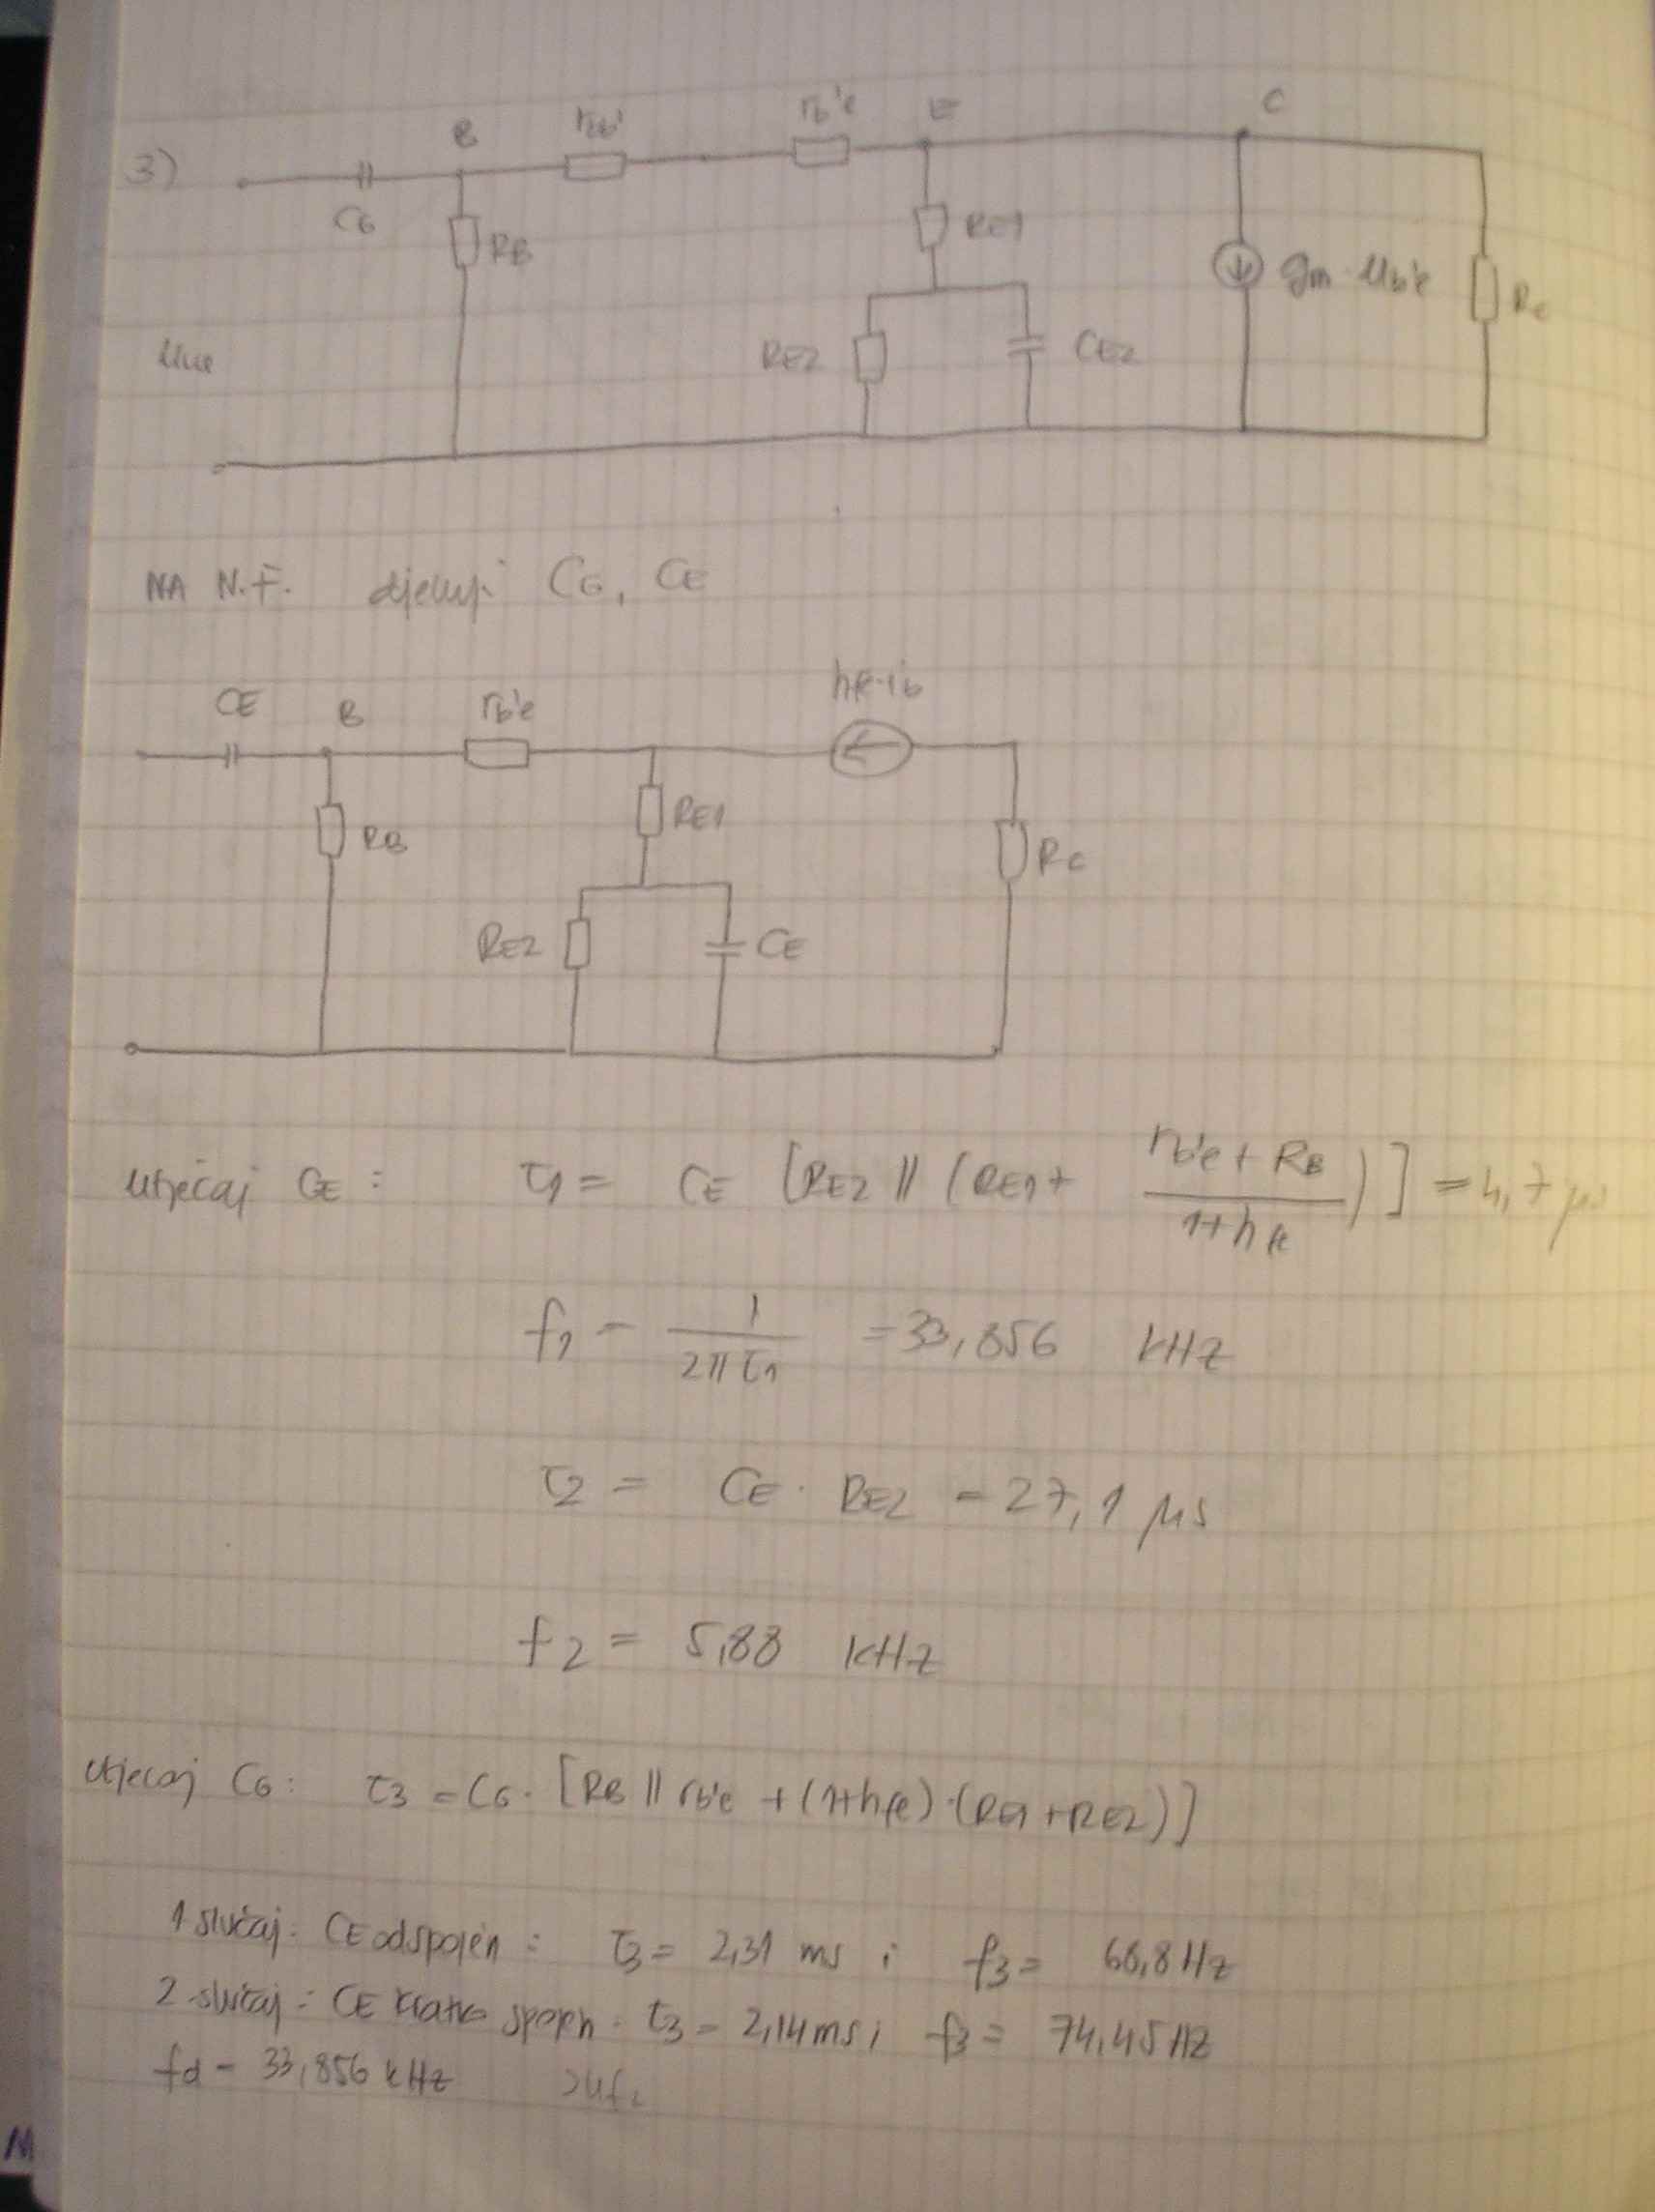 3)
B rbb' rb'e E C
CG RB RE1 gm · Ub'e RC
RE2 CE2
Uul
NA N.F. djeluju CG, CE
CE B rb'e hfe·ib
RB RE1 RC
RE2 CE
utjecaj CE: τ1 = CE [RE2 || (RE1 + (rb'e + RB)/(1+hfe))] = 4,7 μs
f1 = 1/(2πτ1) = 33,856 kHz
τ2 = CE · RE2 = 27,1 μs
f2 = 5,88 kHz
utjecaj CG: τ3 = CG · [RB || rb'e + (1+hfe)·(RE1+RE2)]
1 slučaj: CE odspojen: τ3 = 2,31 ms i f3 = 68,8 Hz
2 slučaj: CE kratko spojen: τ3 = 2,14 ms i f3 = 74,45 Hz
fd = 33,856 kHz